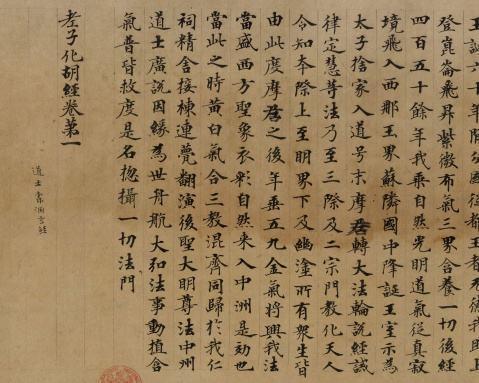 登崑崙飛昇紫微布氣三界含養一切後經
四百五十餘年我乘自然光明道氣從真寂
境飛入西那王界蘇隣國中降誕王室示為
太子捨家入道号末摩尼轉大法輪說經誡
律定慧等法乃至三際及二宗門教化天人
令知本際上至明界下及幽塗所有衆生皆
由此度摩尼之後年垂五九金氣將興我法
當盛西方聖象衣彩自然来入中洲是効也
當此之時黃白氣合三教混齊同歸於我仁
祠精舍接棟連甍翻演後聖大明尊法中州
道士廣說因緣為世舟航大弘法事動植含
氣普皆救度是名惣攝一切法門
老子化胡經卷第一
道士索洞玄經